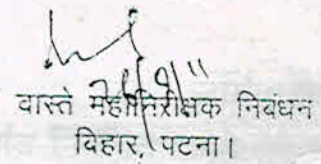 वास्ते महानिरीक्षक निबंधन
बिहार, पटना।